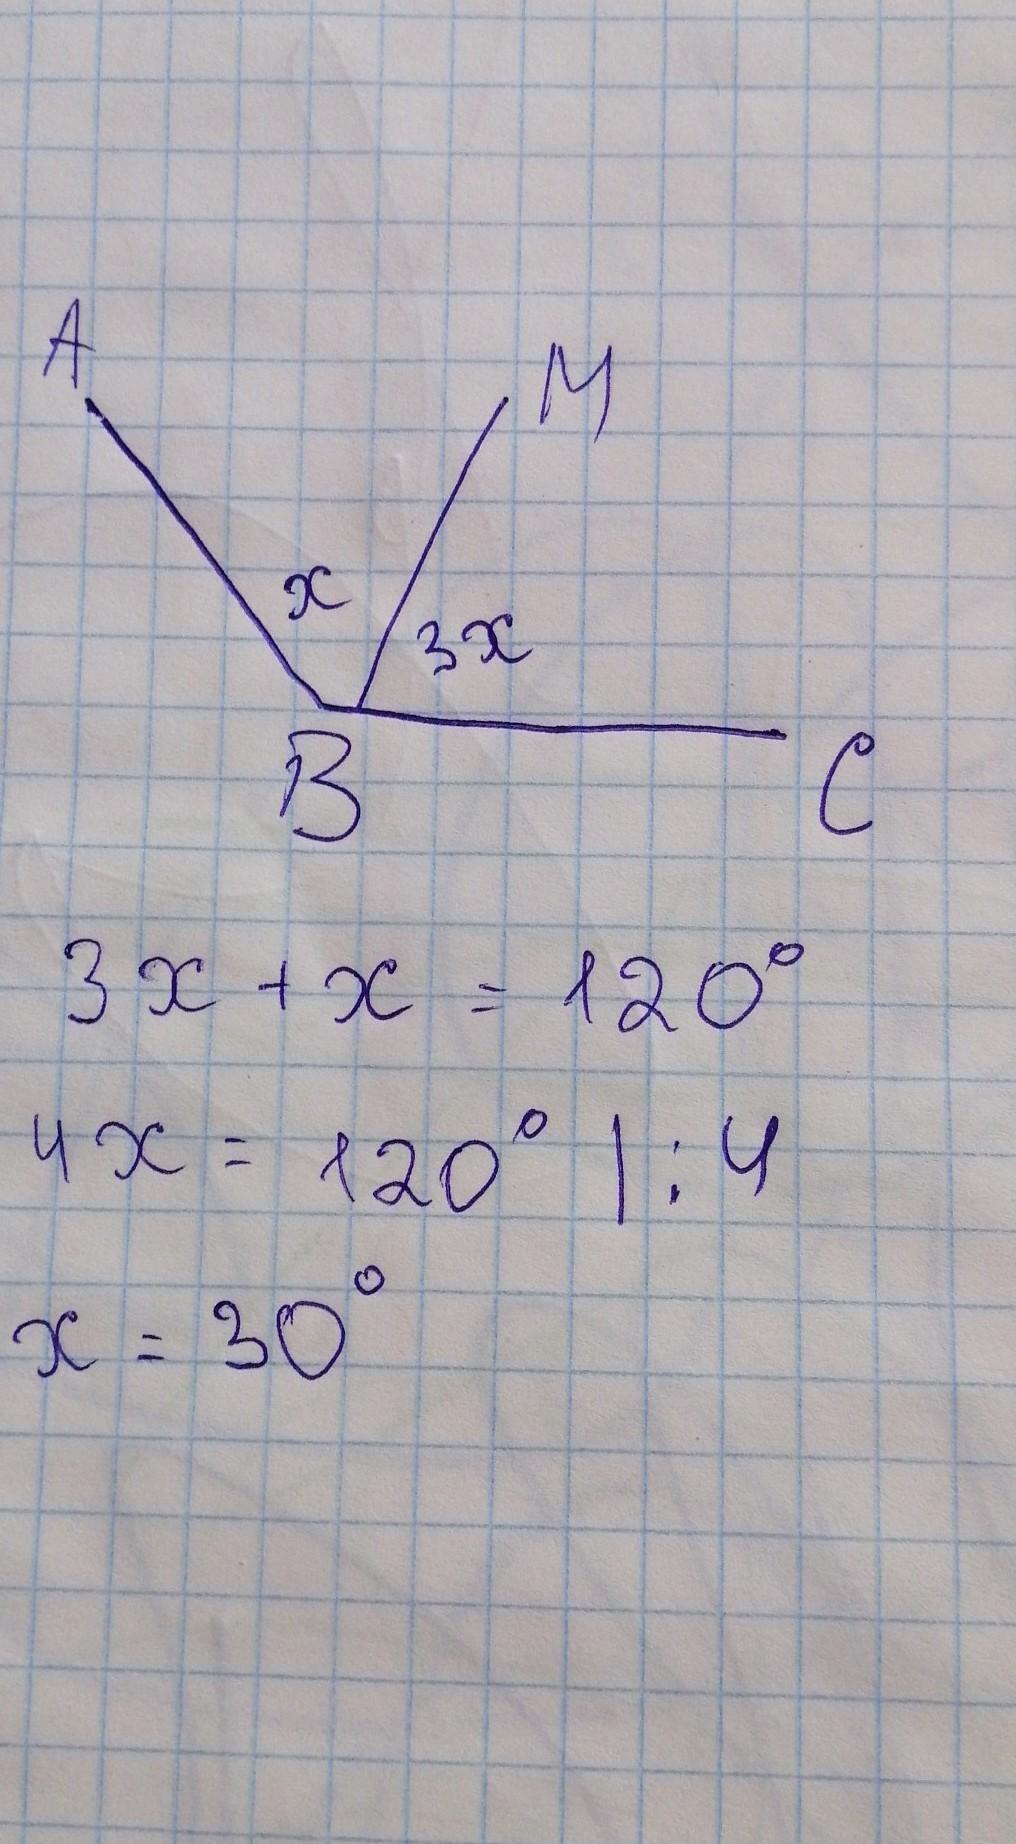 A
M
x
3x
B
C
3x + x = 120°
4x = 120° | : 4
x = 30°